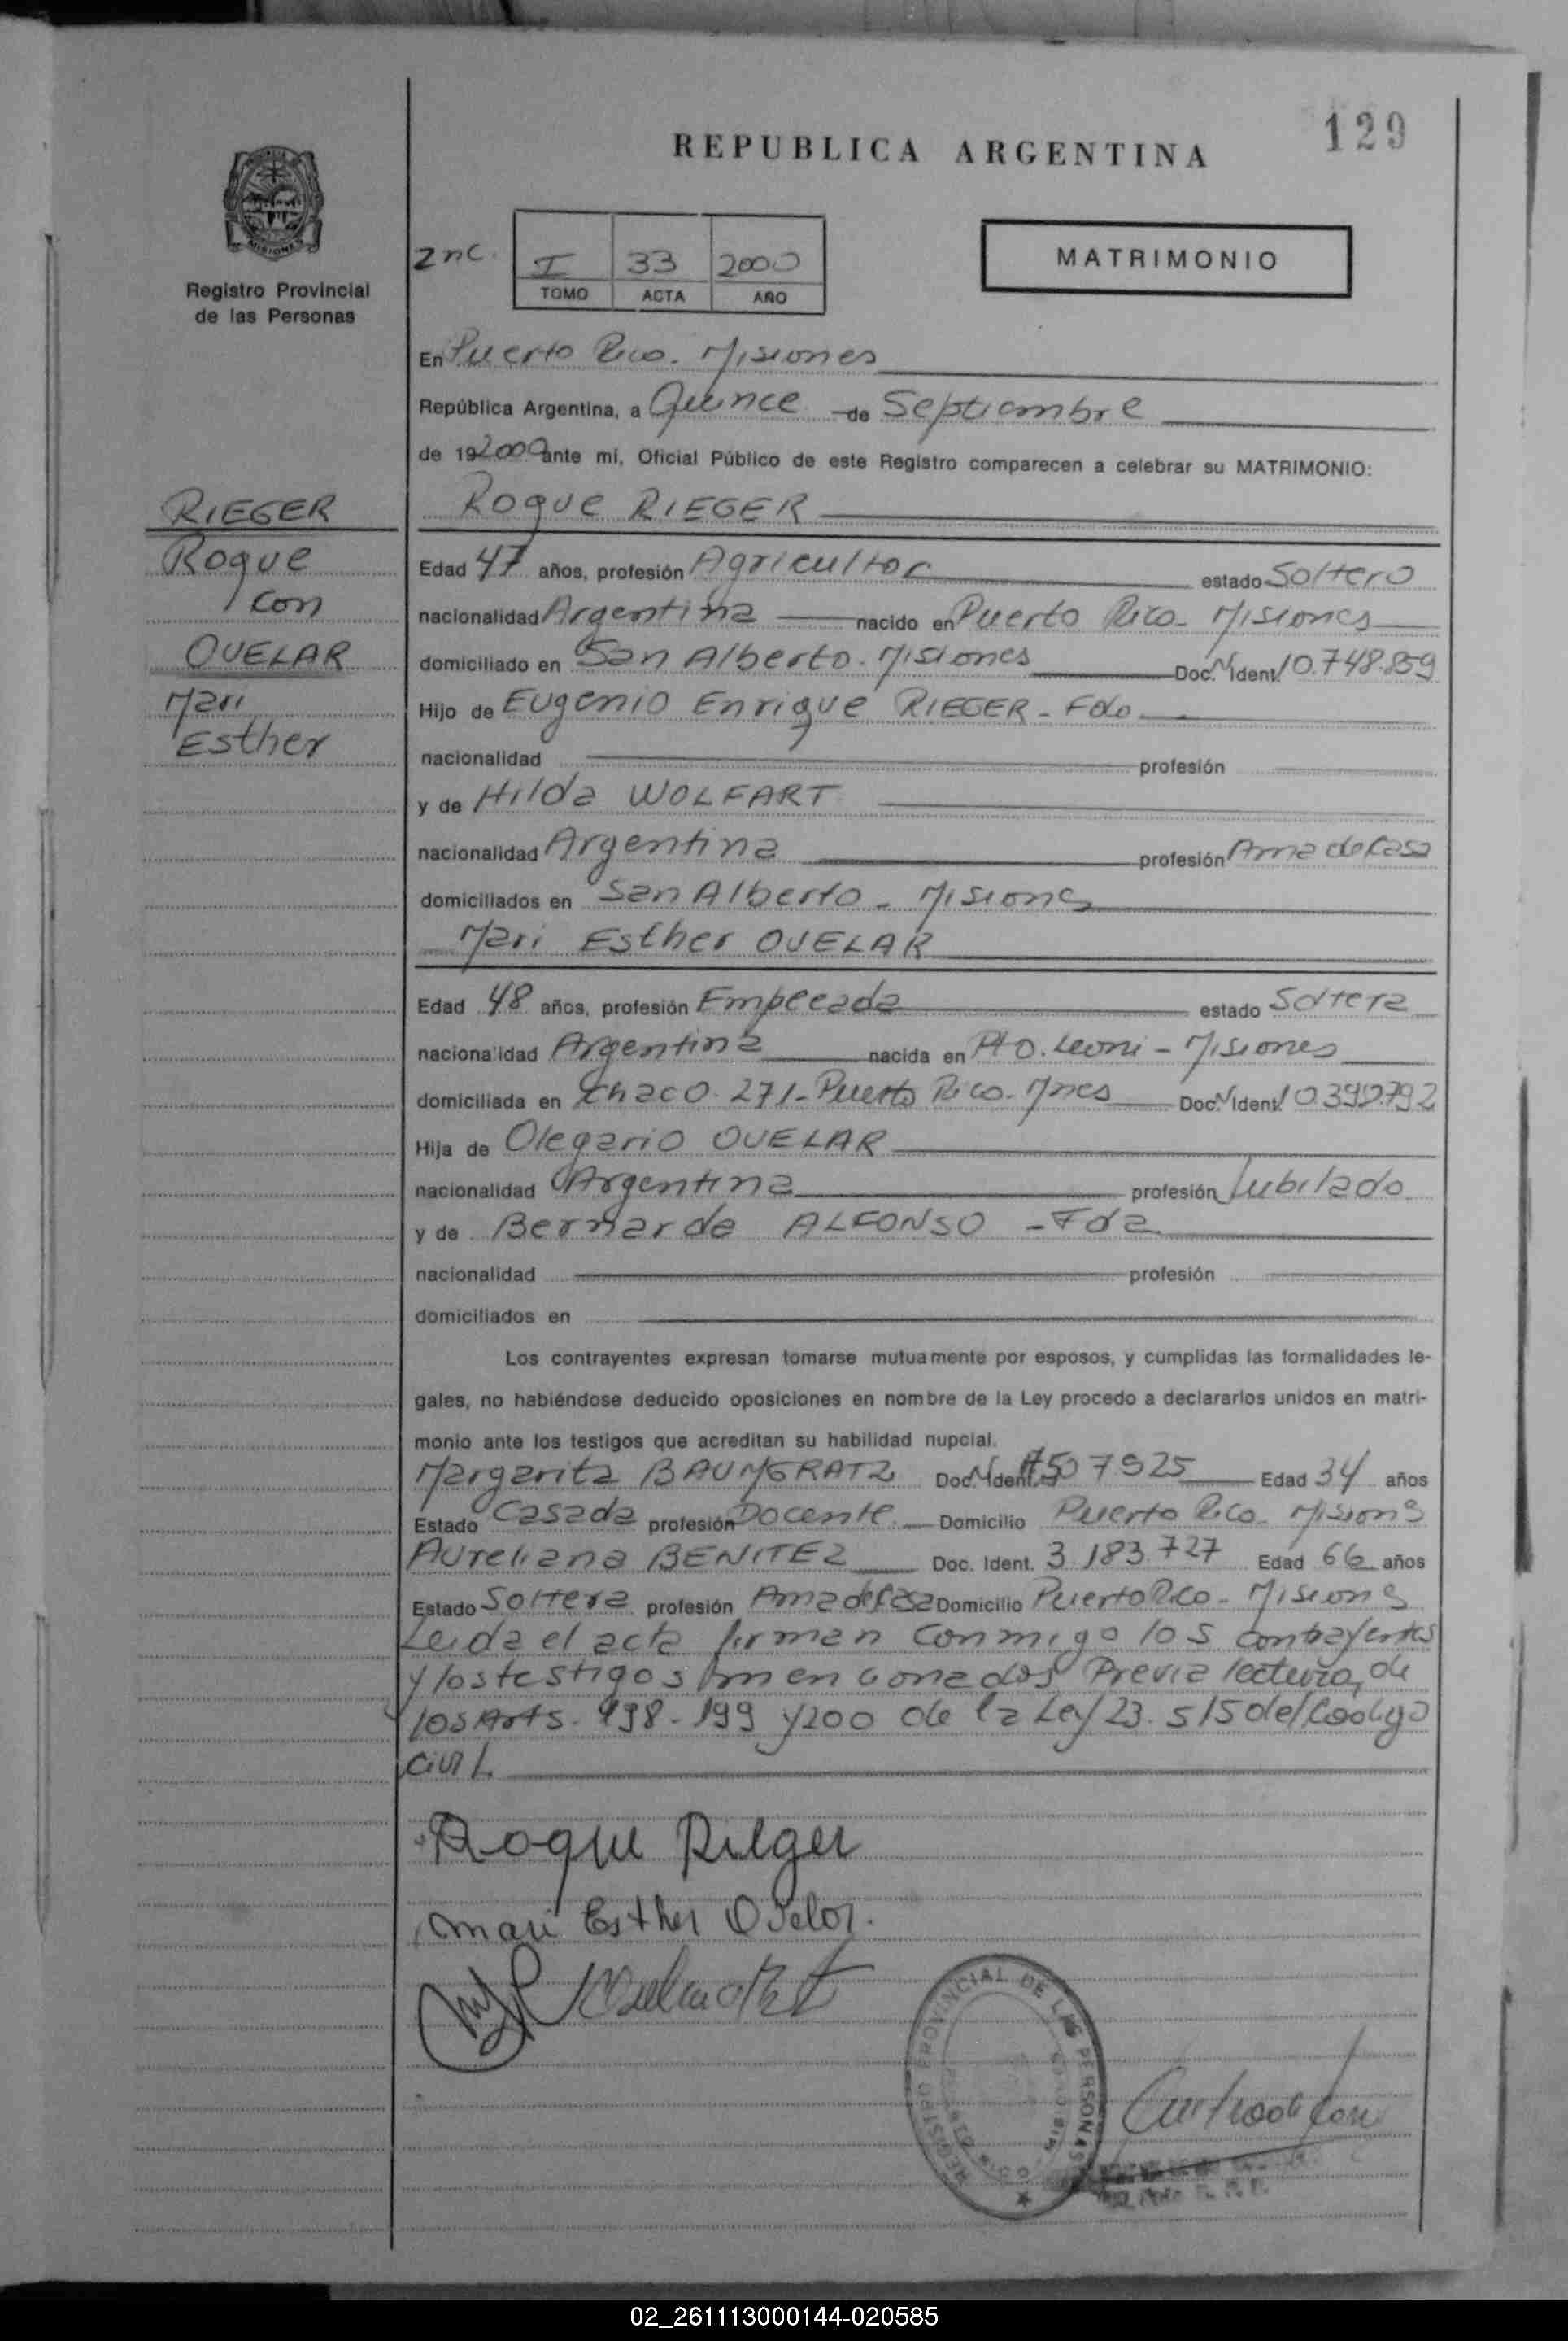 129
REPUBLICA ARGENTINA
MISIONES
Registro Provincial
de las Personas
I 33 2000
TOMO ACTA AÑO
MATRIMONIO
En Puerto Rico. Misiones
República Argentina, a Quince de Septiembre
de 19 2000 ante mi, Oficial Público de este Registro comparecen a celebrar su MATRIMONIO:
RIEGER
Roque
con
OVELAR
Mari
Esther
Roque RIEGER
Edad 47 años, profesión Agricultor estado Soltero
nacionalidad Argentina nacido en Puerto Rico - Misiones
domiciliado en San Alberto - Misiones Doc. N Ident. 10.748.859
Hijo de Eugenio Enrique RIEGER - Fdo
nacionalidad profesión
y de Hilda WOLFART
nacionalidad Argentina profesión Ama de Casa
domiciliados en San Alberto - Misiones
Mari Esther OVELAR
Edad 48 años, profesión Empleada estado Soltera
nacionalidad Argentina nacida en Pto. Leoni - Misiones
domiciliada en Chaco 271 - Puerto Rico - Mnes Doc. N Ident.
Hija de Olegario OVELAR
nacionalidad Argentina profesión Jubilado
y de Bernarda ALFONSO - Fda
nacionalidad profesión
domiciliados en
Los contrayentes expresan tomarse mutuamente por esposos, y cumplidas las formalidades le-
gales, no habiéndose deducido oposiciones en nombre de la Ley procedo a declararlos unidos en matri-
monio ante los testigos que acreditan su habilidad nupcial.
Margarita BAUMGRATZ Doc. N Ident. Edad 34 años
Estado Casada profesión Docente Domicilio Puerto Rico - Misiones
Aureliana BENITEZ Doc. Ident. 3.183.727 Edad 66 años
Estado Soltera profesión Ama de Casa Domicilio Puerto Rico - Misiones
Leida el acta firman conmigo los contrayentes
y los testigos mencionados Previa lectura, de
los Arts. 198 - 199 y 200 de la Ley 23.515 del Codigo
Civil.
Roque Rieger
Mari Esther Ovelar.
REGISTRO PROVINCIAL DE LAS PERSONAS
02_261113000144-020585